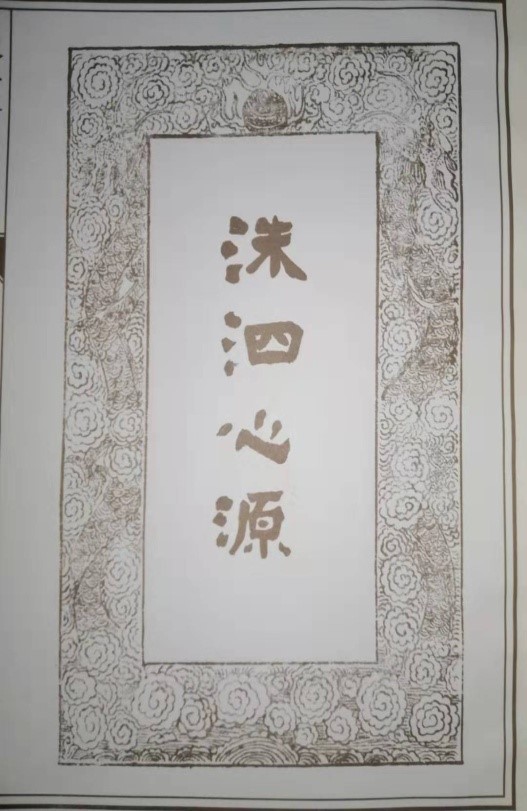 洙泗心源